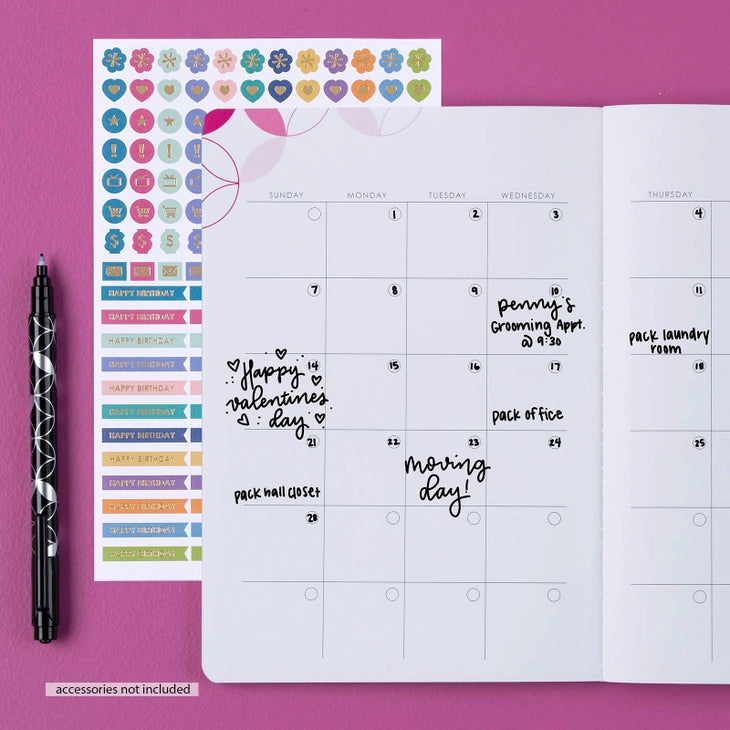 SUNDAY MONDAY TUESDAY WEDNESDAY THURSDAY
1 2 3 4
7 8 9 10 11
penny's
Grooming Appt.
@ 9:30
pack laundry
room
14 15 16 17 18
Happy
valentines
day
pack office
21 22 23 24 25
pack hall closet
moving
day!
28
HAPPY BIRTHDAY
HAPPY BIRTHDAY
HAPPY BIRTHDAY
HAPPY BIRTHDAY
HAPPY BIRTHDAY
HAPPY BIRTHDAY
HAPPY BIRTHDAY
HAPPY BIRTHDAY
HAPPY BIRTHDAY
HAPPY BIRTHDAY
HAPPY BIRTHDAY
HAPPY BIRTHDAY
accessories not included